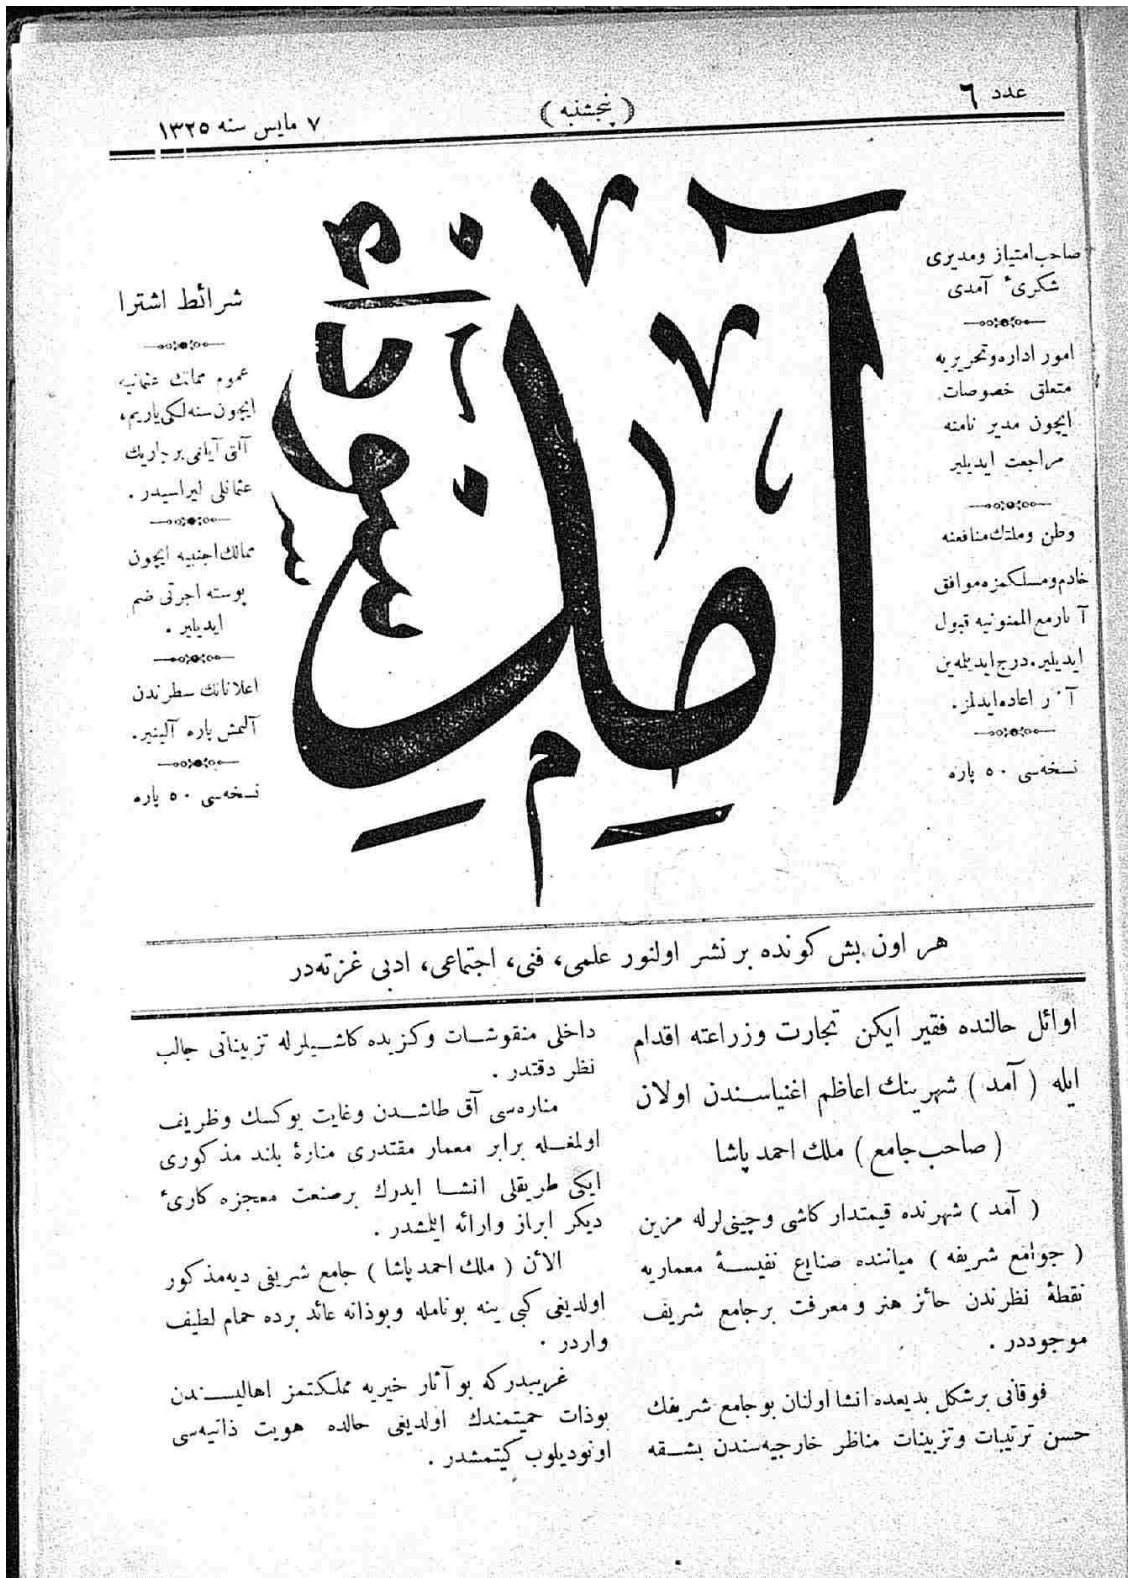 عدد ٦
(پنجشنبه)
٧ مایس سنه ١٣٢٥
صاحب امتیاز ومدیری
شکریٔ آمدی
امور اداره وتحریریه
متعلق خصوصات
ایچون مدیر نامنه
مراجعت ایدیلیر
وطن وملتك منافعنه
خادم ومسلکمزه موافق
آثار مع الممنونیه قبول
ایدیلیر. درج ایدیلمه‌ین
آثار اعاده ایدلمز.
نسخه‌سی ٥٠ پاره
شرائط اشترا
عموم ممالك عثمانیه
ایچون سنه‌لکی یاریم،
آلتی آیلغی بر چاریك
عثمانلی لیراسیدر.
ممالك اجنبیه ایچون
پوسته اجرتی ضم
ایدیلیر.
اعلاناتك سطرندن
آلتمش پاره آلینیر.
نسخه‌سی ٥٠ پاره
هر اون بش کونده بر نشر اولنور علمی، فنی، اجتماعی، ادبی غزته‌در
اوائل حالنده فقیر ایکن تجارت وزراعته اقدام
ایله (آمد) شهرینك اعاظم اغنیاسندن اولان
(صاحب جامع) ملك احمد پاشا
(آمد) شهرنده قیمتدار کاشی وچینی‌لرله مزین
(جوامع شریفه) میاننده صنایع نفیسۀ معماریه
نقطۀ نظرندن حائز هنر ومعرفت برجامع شریف
موجوددر.
فوقانی برشکل بدیعده انشا اولنان بوجامع شریفك
حسن ترتیبات وتزیینات مناظر خارجیه‌سندن بشقه
داخلی منقوشات وکزیده کاشیلرله تزییناتی جالب
نظر دقتدر.
مناره‌سی آق طاشدن وغایت یوکسك وظریف
اولمغله برابر معمار مقتدری منارۀ بلند مذکوری
ایکی طریقلی انشا ایدرك برصنعت معجزه کاریٔ
دیکر ابراز وارائه ایلمشدر.
الآن (ملك احمد پاشا) جامع شریفی دیه مذکور
اولدیغی کبی ینه بونامله وبوذاته عائد برده حمام لطیف
واردر.
غریبدرکه بو آثار خیریه مملکتمز اهالیسندن
بوذات حمیتمندك اولدیغی حالده هویت ذاتیه‌سی
اونودیلوب کیتمشدر.